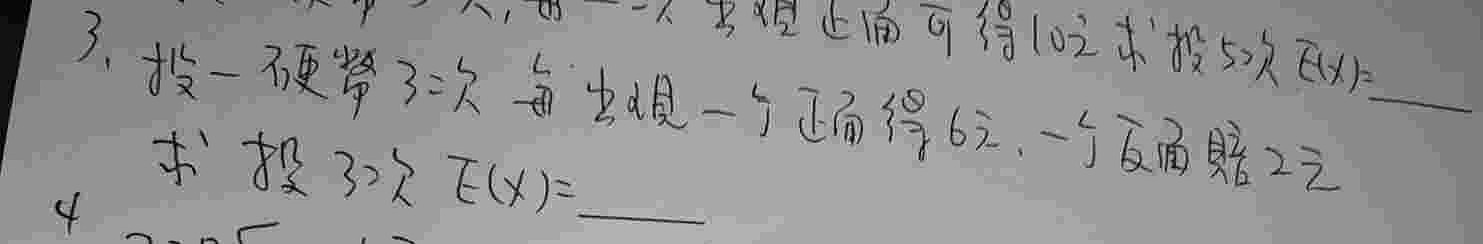 次,每一次出现正面可得10元 求投5次 E(X)=____
3. 投一硬幣3次 每出现一个正面得6元.一个反面賠2元
求投3次 E(X)=____
4